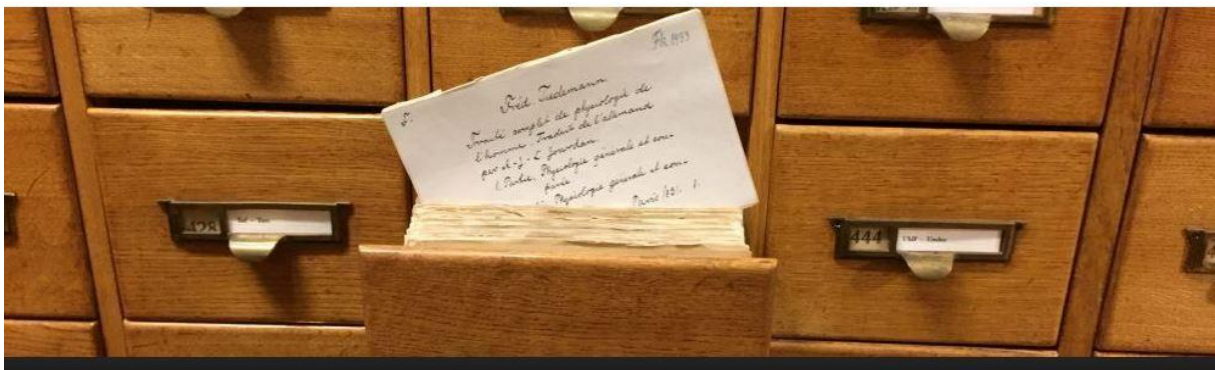 Ph 1933
T.
Fréd. Tiedemann
Traité complet de physiologie de
l'homme. Traduit de l'allemand
par A-J-L Jourdan.
1. Partie, Physiologie générale et com-
parée
Physiologie générale et com-
Paris 1831.
428
444